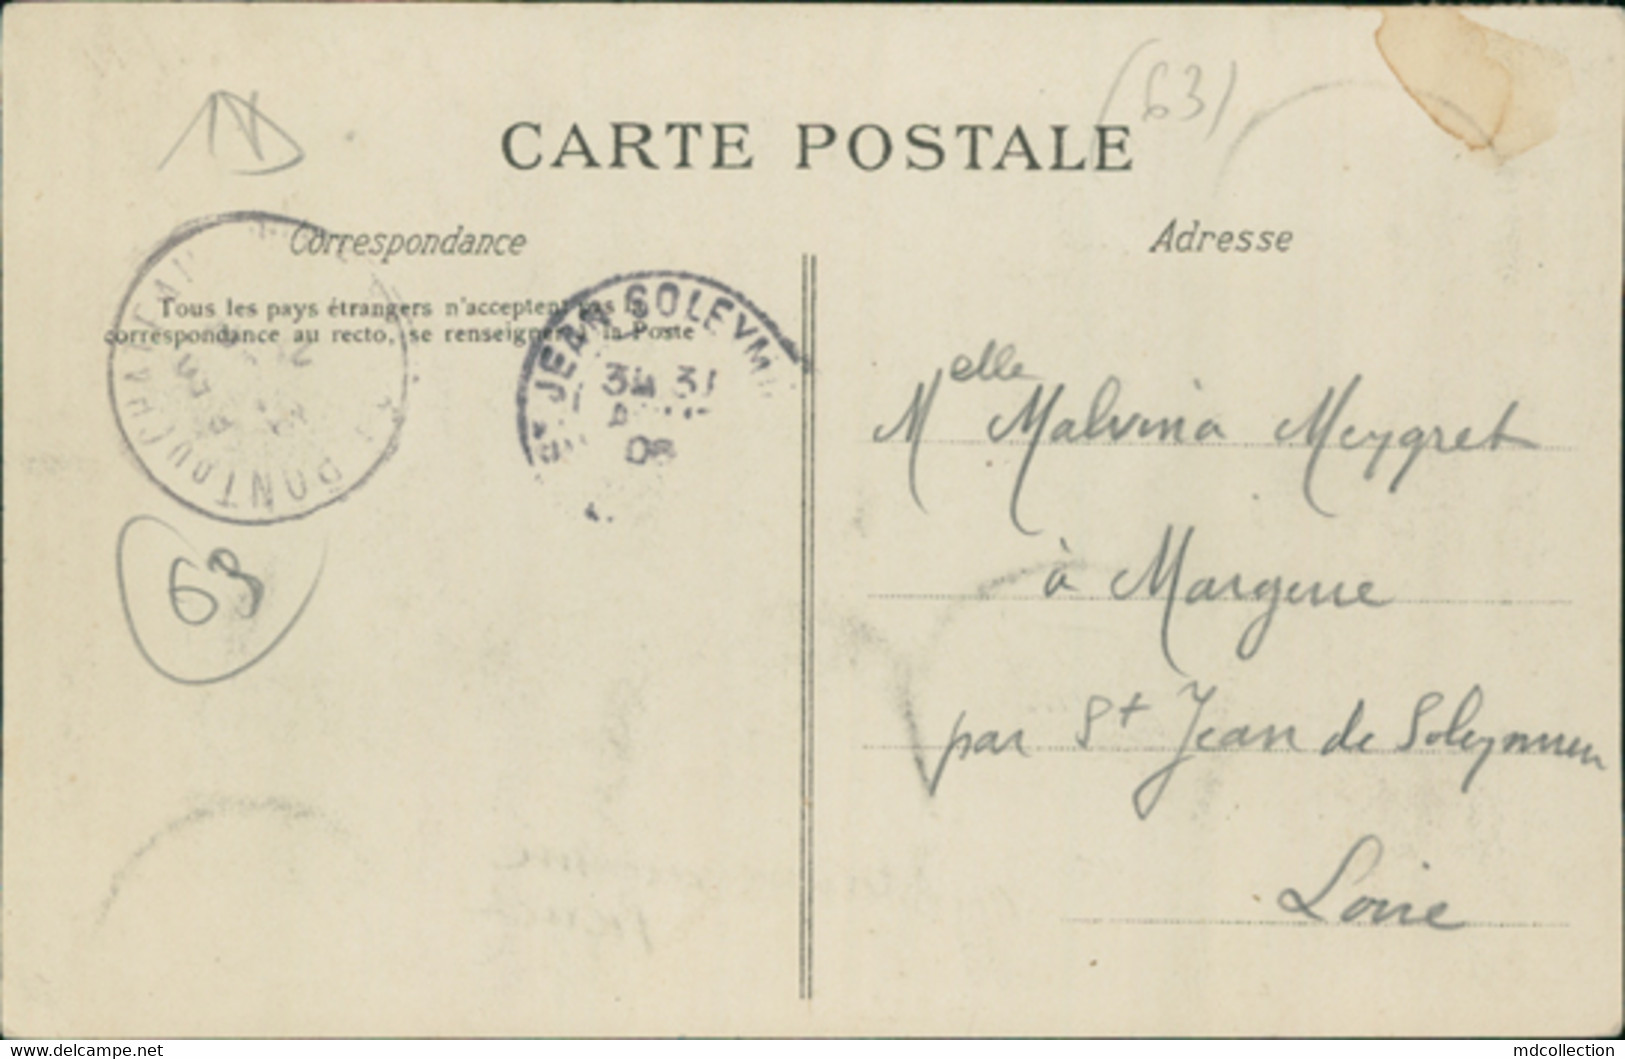 (63)
CARTE POSTALE
Correspondance
Adresse
Tous les pays étrangers n'acceptent pas la
correspondance au recto, se renseigner à la Poste
PONTCHA
JEAN SOLEYM
3E 31
08
63
Melle Malvina Meygret
à Margerie
par St Jean de Soleymieu
Loire
www.delcampe.net
mdcollection